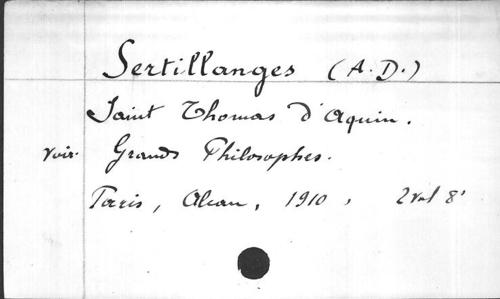 Sertillanges (A.D.)
Saint Thomas d'Aquin.
Voir. Grands Philosophes.
Paris, Alcan, 1910, 2 vol 8°